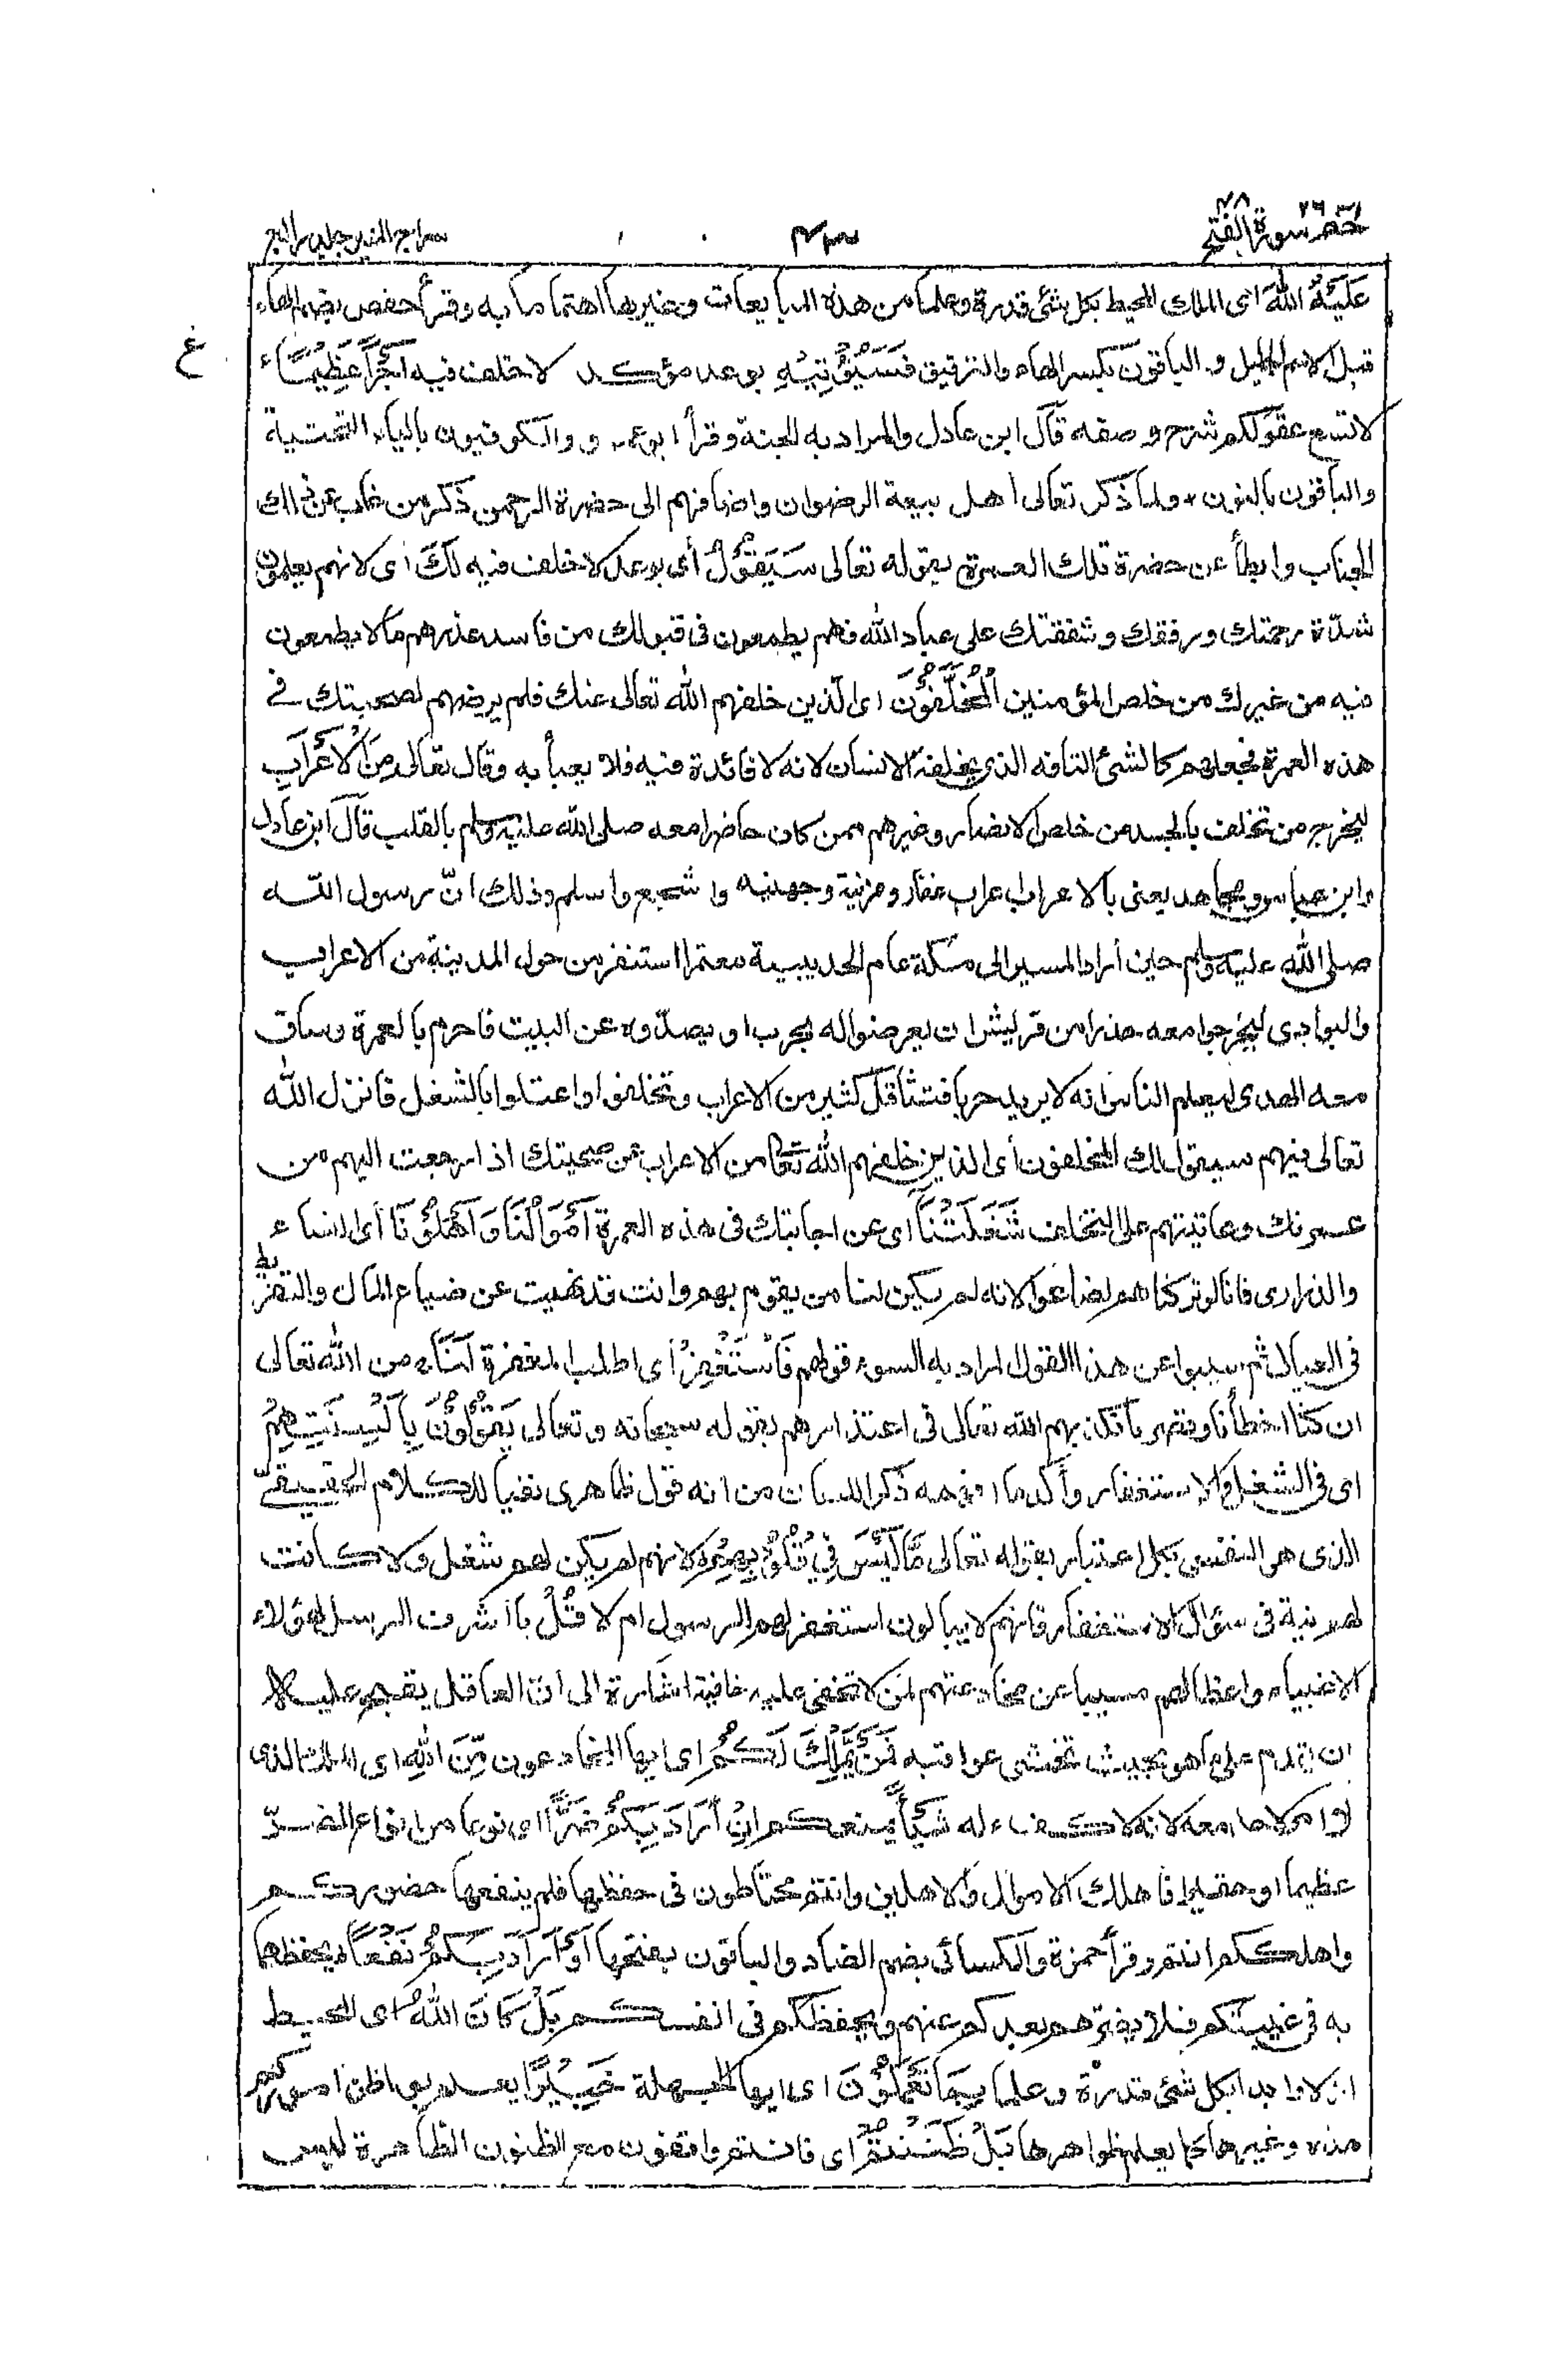 حم ٢٦ سورة الفتح ٤٨
٤٣
سراج المنير جلد رابع
عَلَيْهُ اللهَ اى الملك المحيط بكل شئ قدرة وعلما من هذه المبايعات وغيرها اهتماما به وقرأ حفص بضم الهاء
قبل الاسم الجليل والباقون بكسر الهاء والترقيق فَسَيُؤْتِيْهِ بوعد مؤكد لا خلف فيه اَجْرًا عَظِيْمًا ء
ع
لا تسع عقولكم شرح وصفه قال ابن عادل والمراد به الجنة وقرأ ابوعمرو والكوفيون بالياء التحتية
والباقون بالنون ولما ذكر تعالى اهل بيعة الرضوان واضافهم الى حضرة الرحمن ذكر من غاب عن ذلك
الجناب وابطأ عن حضرة تلك العمرة بقوله تعالى سَيَقُوْلُ أى بوعد لا خلف فيه لَكَ اى لانهم يعلمون
شدّة رحمتك ورفقك وشفقتك على عباد الله فهم يطمعون فى قبولك من فاسد عذرهم ما لا يطمعون
فيه من غيرك من خلص المؤمنين الْمُخَلَّفُوْنَ اى الّذين خلفهم الله تعالى عنك فلم يرضهم لصحبتك فى
هذه العمرة فجعلهم كالشئ التافه الذى يخلفه الانسان لانه لا فائدة فيه فلا يعبأ به وقال تعالى مِنَ الْاَعْرَابِ
ليخرج من تخلف بالجسد من خلص الانصار وغيرهم ممن كان حاضرا معه صلى الله عليه وسلم بالقلب قال ابن عادل
وابن عباس ومجاهد يعنى بالاعراب اعراب غفار ومزنية وجهينه واشجع واسلم وذلك انّ رسول الله
صلى الله عليه وسلم حين أراد المسير الى مكة عام الحديبية معتمرا استنفر من حول المدينة من الاعراب
والبوادى ليخرجوا معه حذرا من قريش ان يعرضوا له بحرب او يصدّوه عن البيت فاحرم بالعمرة وساق
معه الهدى ليعلم الناس انه لا يريد حربا فتثاقل كثير من الاعراب وتخلفوا واعتلوا بالشغل فانزل الله
تعالى فيهم سيقول لك المخلفون أى الذين خلفهم الله تعالى من الاعراب عن صحبتك اذا رجعت اليهم من
عمرتك وعاتبتهم على التخلف شَغَلَتْنَا اى عن اجابتك فى هذه العمرة اَمْوَالُنَا وَاَهْلُوْنَا أى النساء
والذرارى فانا لو تركناهم لضاعوا لانه لم يكن لنا من يقوم بهم وانت قد نهيت عن ضياع المال والتفريط
فى العيال ثم سببوا عن هذا القول المراد به السوء قولهم فَاسْتَغْفِرْ أى اطلب المغفرة لَنَا من الله تعالى
ان كنا اخطأنا وقصرنا تكذبهم الله تعالى فى اعتذارهم بقوله سبحانه وتعالى يَقُوْلُوْنَ بِاَلْسِنَتِهِمْ
اى فى الشغل والاستغفار وأكد ما افهمه ذكر اللسان من انه قول ظاهرى نفيا للكلام الحقيقىّ
الذى هو النفسى بكل اعتبار بقوله تعالى مَّا لَيْسَ فِيْ قُلُوْبِهِمْ لانهم لم يكن لهم شغل ولا كانت
لهم نية فى سؤال الاستغفار فانهم لا يبالون استغفر لهم الرسول ام لا قُلْ يا اشرف الرسل لهؤلاء
الاغبياء واعظا لهم مسببا عن مخادعتهم لمن لا تخفى عليه خافية اشارة الى أنّ العاقل يقبح عليه
ان يقدم على ما هو بحيث تخشى عواقبه فَمَنْ يَّمْلِكُ لَكُمْ اى ايها المخادعون مِّنَ اللهِ اى الملك الذى
لا امر لاحد معه لانه لا كفء له شَيْـًٔا يمنعكم اِنْ اَرَادَ بِكُمْ ضَرًّا اى نوعا من انواع الضرّ
عظيما او حقيرا فاهلك الاموال والاهلين وانتم محتاطون فى حفظها فلم ينفعها حضوركم
واهلككم انتم وقرأ حمزة والكسائى بضم الضاد والباقون بفتحها اَوْ اَرَادَ بِكُمْ نَفْعًا يحفظها
به فى غيبتكم فلا يضرهم بعدكم عنهم ويحفظكم فى انفسكم بَلْ كَانَ اللهُ اى المحيط
ازلا وابدا بكل شئ قدرة وعلما بِمَا تَعْمَلُوْنَ اى ايها الجهلة خَبِيْرًا يعلم بواطن اموركم
هذه وغيرها كما يعلم ظواهرها بَلْ ظَنَنْتُمْ اى فانتم واقفون مع الظنون الظاهرة ليس